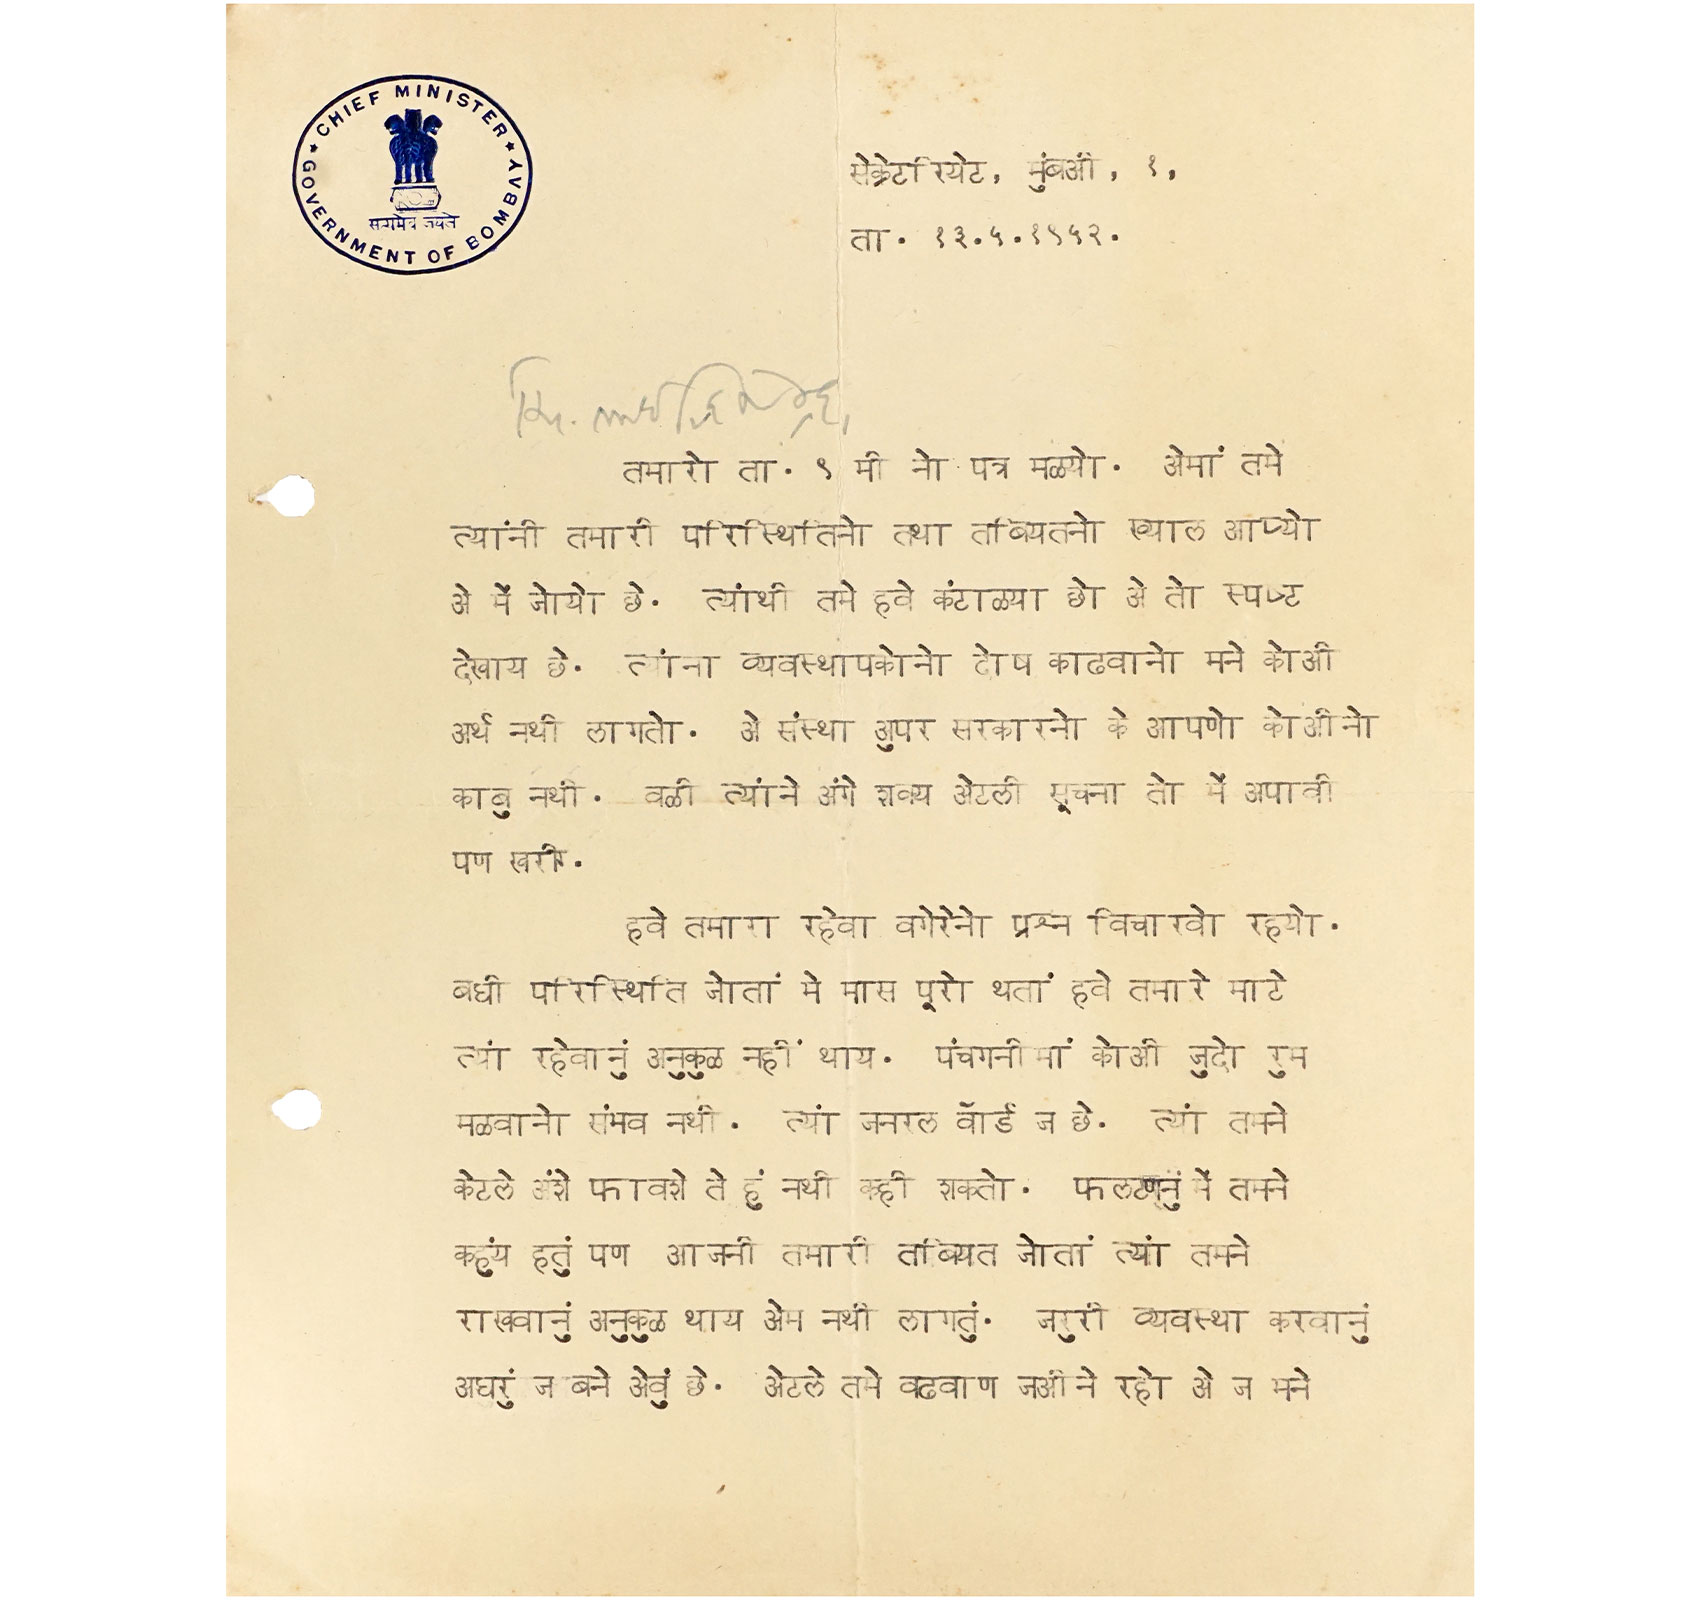 CHIEF MINISTER
GOVERNMENT OF BOMBAY
सत्यमेव जयते
सेक्रेटरियेट, मुंबअी, १,
ता. १३.५.१९५२.
चि.
तमारो ता. ९ मी नो पत्र मळयो. अेमां तमे
त्यांनी तमारी परिस्थितिनो तथा तबियतनो ख्याल आप्यो
अे में जोयो छे. त्यांथी तमे हवे कंटाळया छो अे तो स्पष्ट
देखाय छे. त्यांना व्यवस्थापकोनो दोष काढवानो मने कोअी
अर्थ नथी लागतो. अे संस्था अुपर सरकारनो के आपणो कोअीनो
काबु नथी. वळी त्यांने अंगे शक्य अेटली सूचना तो में अपावी
पण खरी.
हवे तमारा रहेवा वगेरेनो प्रश्न विचारवो रहयो.
बधी परिस्थिति जोतां मे मास पूरो थतां हवे तमारे माटे
त्यां रहेवानुं अनुकुळ नहीं थाय. पंचगनीमां कोअी जुदो रुम
मळवानो संभव नथी. त्यां जनरल वॉर्ड ज छे. त्यां तमने
केटले अंशे फावशे ते हुं नथी कही शकतो. फलटणनुं में तमने
कहुंय हतुं पण आजनी तमारी तबियत जोतां त्यां तमने
राखवानुं अनुकुळ थाय अेम नथी लागतुं. जरुरी व्यवस्था करवानुं
अघरुं ज बने अेवुं छे. अेटले तमे वढवाण जअीने रहो अे ज मने